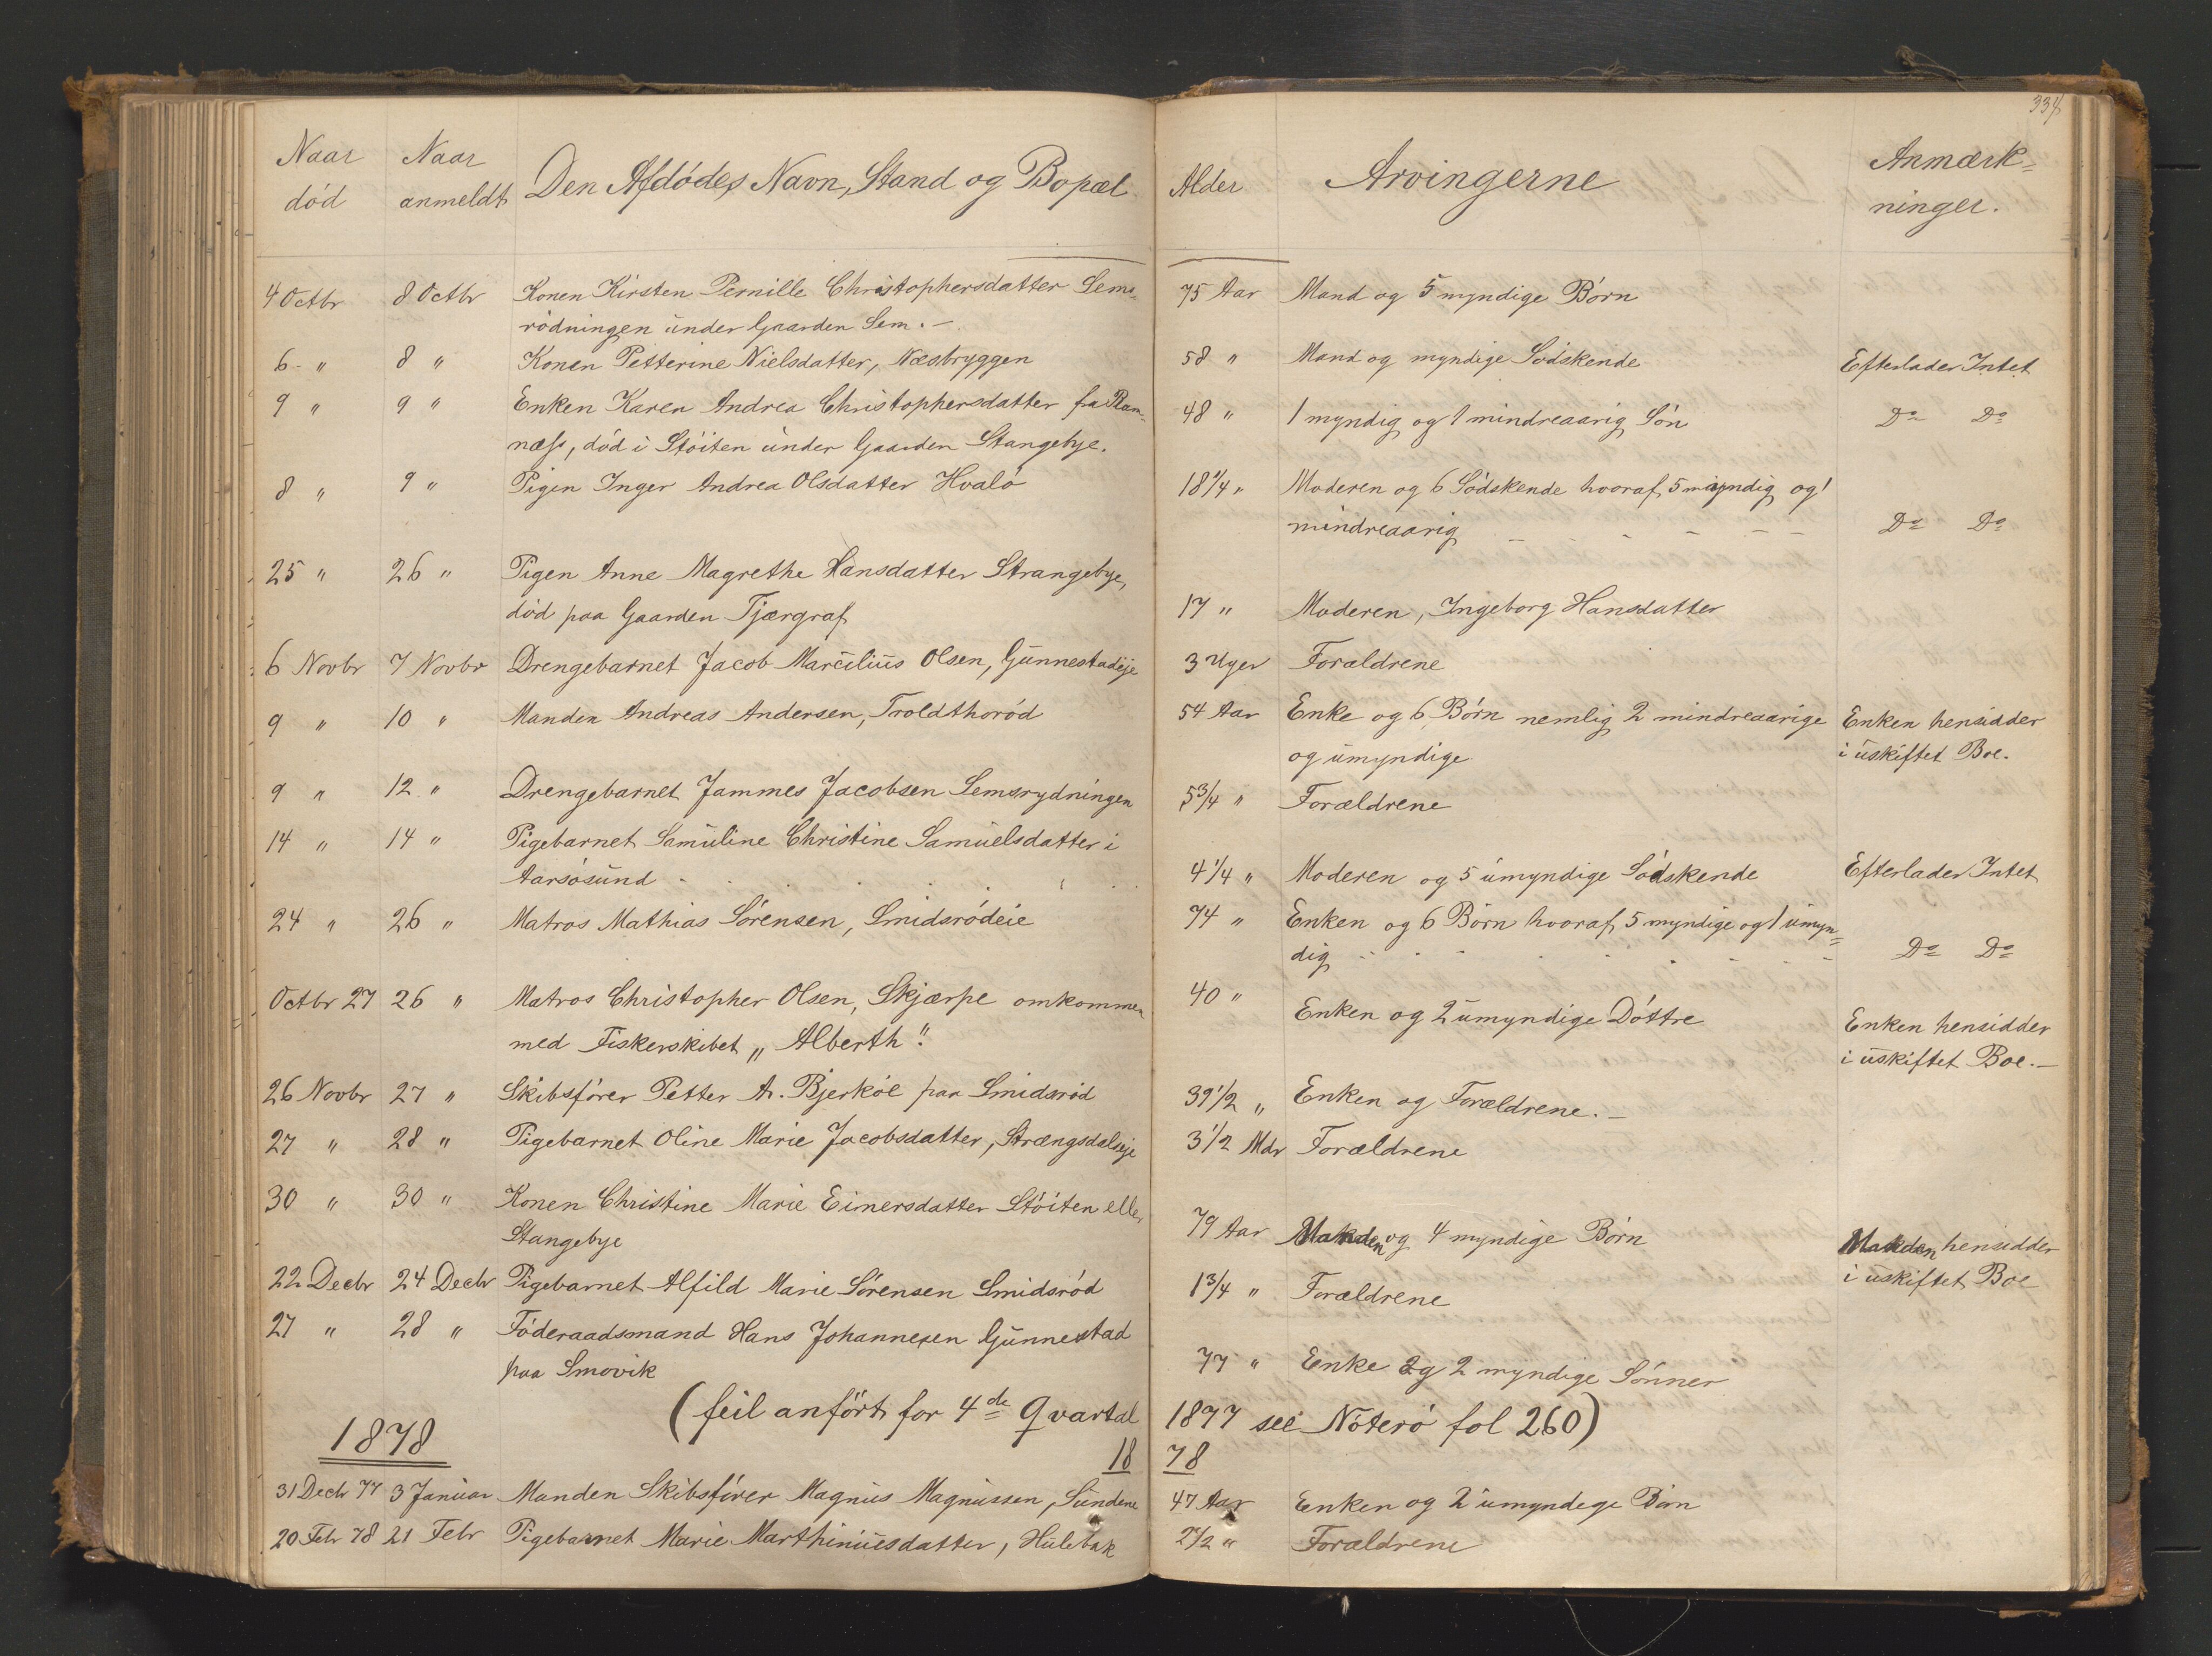 334
Naar død | Naar anmeldt | Den Afdødes Navn, Stand og Bopæl | Alder | Arvingerne | Anmærk=ninger.
4 Octbr | 8 Octbr | Konen Kirsten Pernille Christophersdatter Sems= | 75 Aar | Mand og 5 myndige Børn
rødningen under Gaarden Sem.-
6 - " | 8 " | Konen Petterine Nielsdatter, Næsbryggen | 58 " | Mand og myndige Södskende | Efterlader Intet
9 " | 9 " | Enken Karen Andrea Christophersdatter fra Ram= | 48 " | 1 myndig og 1 mindreaarig Søn | Do Do
næss, død i Støiten under Gaarden Stangebye.
8 " | 9 " | Pigen Inger Andrea Olsdatter Hvalø | 18 1/4 " | Moderen og 6 Södskende hvoraf 5 myndig og 1
mindreaarig - - - - - | Do Do
25 " | 26 " | Pigen Anne Magrethe Hansdatter Strangebye,
død paa Gaarden Tjærgraf | 17 " | Moderen, Ingeborg Hansdatter
6 Novbr | 7 Novbr | Drengebarnet Jacob Marcilius Olsen, Gunnestadeje | 3 Uger | Forældrene
9 " | 10 " | Manden Andreas Andersen, Troldthorød | 54 Aar | Enke og 6 Børn nemlig 2 mindreaarige | Enken hensidder
og umyndige | i uskiftet Boe.
9 " | 12 " | Drengebarnet Jammes Jacobsen Semsrydningen | 5 3/4 " | Forældrene
14 " | 14 " | Pigebarnet Samuline Christine Samuelsdatter i
Aarsøsund | 4 1/4 " | Moderen og 5 umyndige Södskende | Efterlader Intet
24 " | 26 " | Matros Mathias Sørensen, Smidsrødeie | 74 " | Enken og 6 Børn hvoraf 5 myndige og 1 umyn=
dig | Do Do
Octbr 27 | 26 " | Matros Christopher Olsen, Skjærpe omkommen | 40 " | Enken og 2 umyndige Døttre | Enken hensidder
med Fiskerskibet „Alberth" | i uskiftet Boe.-
26 Novbr | 27 " | Skibsfører Petter A. Bjerkøe paa Smidsrød | 39 1/2 " | Enken og Forældrene.-
27 " | 28 " | Pigebarnet Oline Marie Jacobsdatter, Strængsdalseje | 3 1/2 Mdr | Forældrene
30 " | 30 " | Konen Christine Marie Eimersdatter Støiten eller
Stangebye | 79 Aar | Manden og 4 myndige Børn | Manden hensidder
i uskiftet Boe
22 Decbr | 24 Decbr | Pigebarnet Alfild Marie Sørensen Smidsrød | 1 3/4 " | Forældrene
27 " | 28 " | Føderaadsmand Hans Johannesen Gunnestad
paa Smovik | 77 " | Enke og 2 myndige Sønner
(feil anført for 4de Qvartal 1877 see Nøterø fol 260)
1878
1878
31 Decbr 77 | 3 Januar | Manden Skibsfører Magnus Magnussen, Sundene | 47 Aar | Enken og 2 umyndege Børn
20 Febr 78 | 21 Febr | Pigebarnet Marie Marthiniusdatter, Hulebak | 2 1/2 " | Forældrene